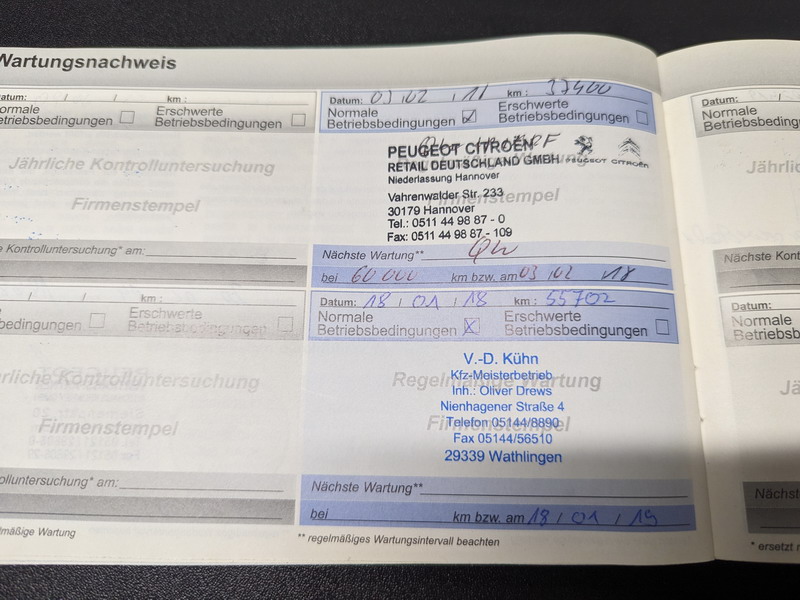 Wartungsnachweis
atum: / / km :
ormale
etriebsbedingungen
Erschwerte
Betriebsbedingungen
Jährliche Kontrolluntersuchung
Firmenstempel
e Kontrolluntersuchung* am:
Datum: 03 / 02 / 17 km : 37400
Normale
Betriebsbedingungen
Erschwerte
Betriebsbedingungen
PEUGEOT CITROËN
RETAIL DEUTSCHLAND GMBH
PEUGEOT CITROËN
Niederlassung Hannover
Vahrenwalder Str. 233
30179 Hannover
Tel.: 0511 44 98 87 - 0
Fax: 0511 44 98 87 - 109
Firmenstempel
Nächste Wartung**
bei 60 000 km bzw. am 03 / 02 / 18
/ / km :
bedingungen
Erschwerte
Betriebsbedingungen
rliche Kontrolluntersuchung
Firmenstempel
olluntersuchung* am:
elmäßige Wartung
Datum: 18 / 01 / 18 km : 55702
Normale
Betriebsbedingungen
Erschwerte
Betriebsbedingungen
Regelmäßige Wartung
Firmenstempel
V.-D. Kühn
Kfz-Meisterbetrieb
Inh.: Oliver Drews
Nienhagener Straße 4
Telefon 05144/8890
Fax 05144/56510
29339 Wathlingen
Nächste Wartung**
bei km bzw. am 18 / 01 / 19
** regelmäßiges Wartungsintervall beachten
Datum:
Normale
Betriebsbedingung
Jährl
Nächste Kont
Datum:
Normale
Betriebsbeding
Jä
Nächst
bei
* ersetzt r